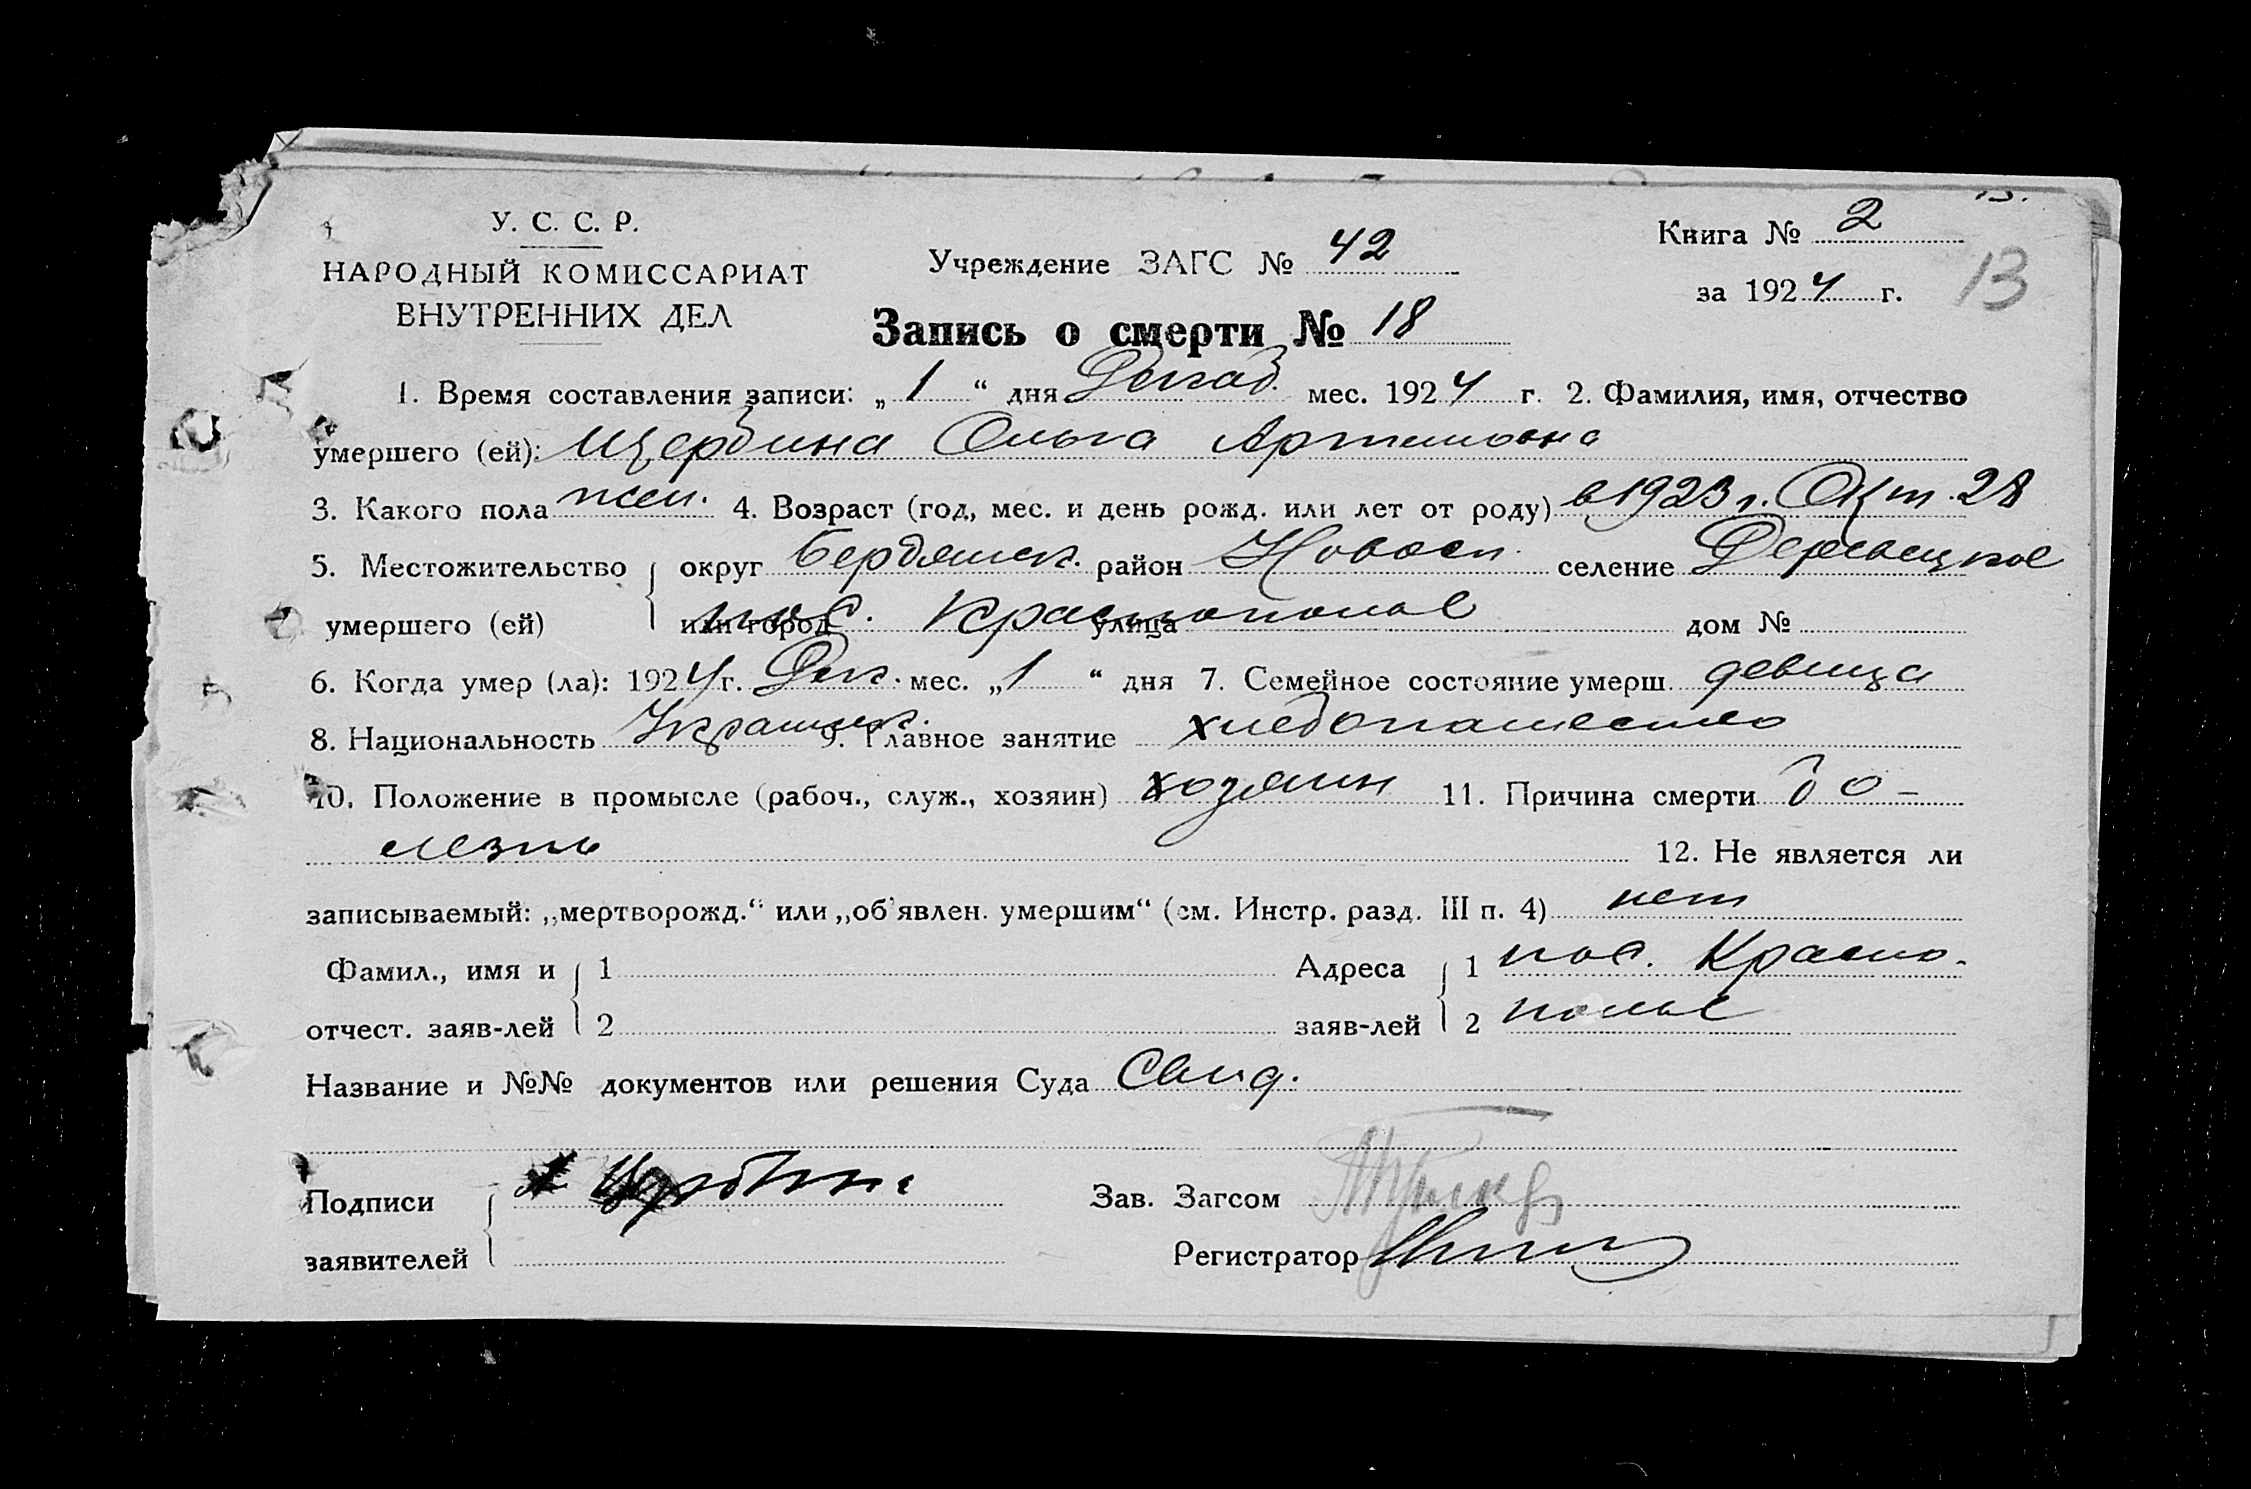 У. С. С. Р.
НАРОДНЫЙ КОМИССАРИАТ
ВНУТРЕННИХ ДЕЛ
Учреждение ЗАГС № 42
Книга № 2
за 1924 г.
13
Запись о смерти № 18
1. Время составления записи: „1“ дня Декаб. мес. 1924 г. 2. Фамилия, имя, отчество
умершего (ей): Щербина Ольга Артемовна
3. Какого пола жен. 4. Возраст (год, мес. и день рожд. или лет от роду) в 1923 г. Окт. 28
5. Местожительство округ Бердянск. район Новосп. селение
умершего (ей) или город пос. Краснополье улица дом №
6. Когда умер (ла): 1924 г. Дек. мес. „1“ дня 7. Семейное состояние умерш. девица
8. Национальность Украинск. 9. Главное занятие хлебопашество
10. Положение в промысле (рабоч., служ., хозяин) хозяин 11. Причина смерти бо-
лезнь 12. Не является ли
записываемый: „мертворожд.“ или „об'явлен. умершим“ (см. Инстр. разд. III п. 4) нет
Фамил., имя и 1 Адреса 1 пос. Красно-
отчест. заяв-лей 2 заяв-лей 2 полье
Название и №№ документов или решения Суда Свид.
Подписи Щербина Зав. Загсом
заявителей Регистратор